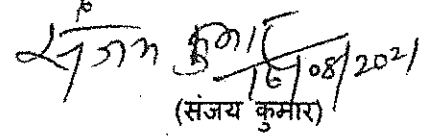 संजय कुमार
16/08/2021
(संजय कुमार)